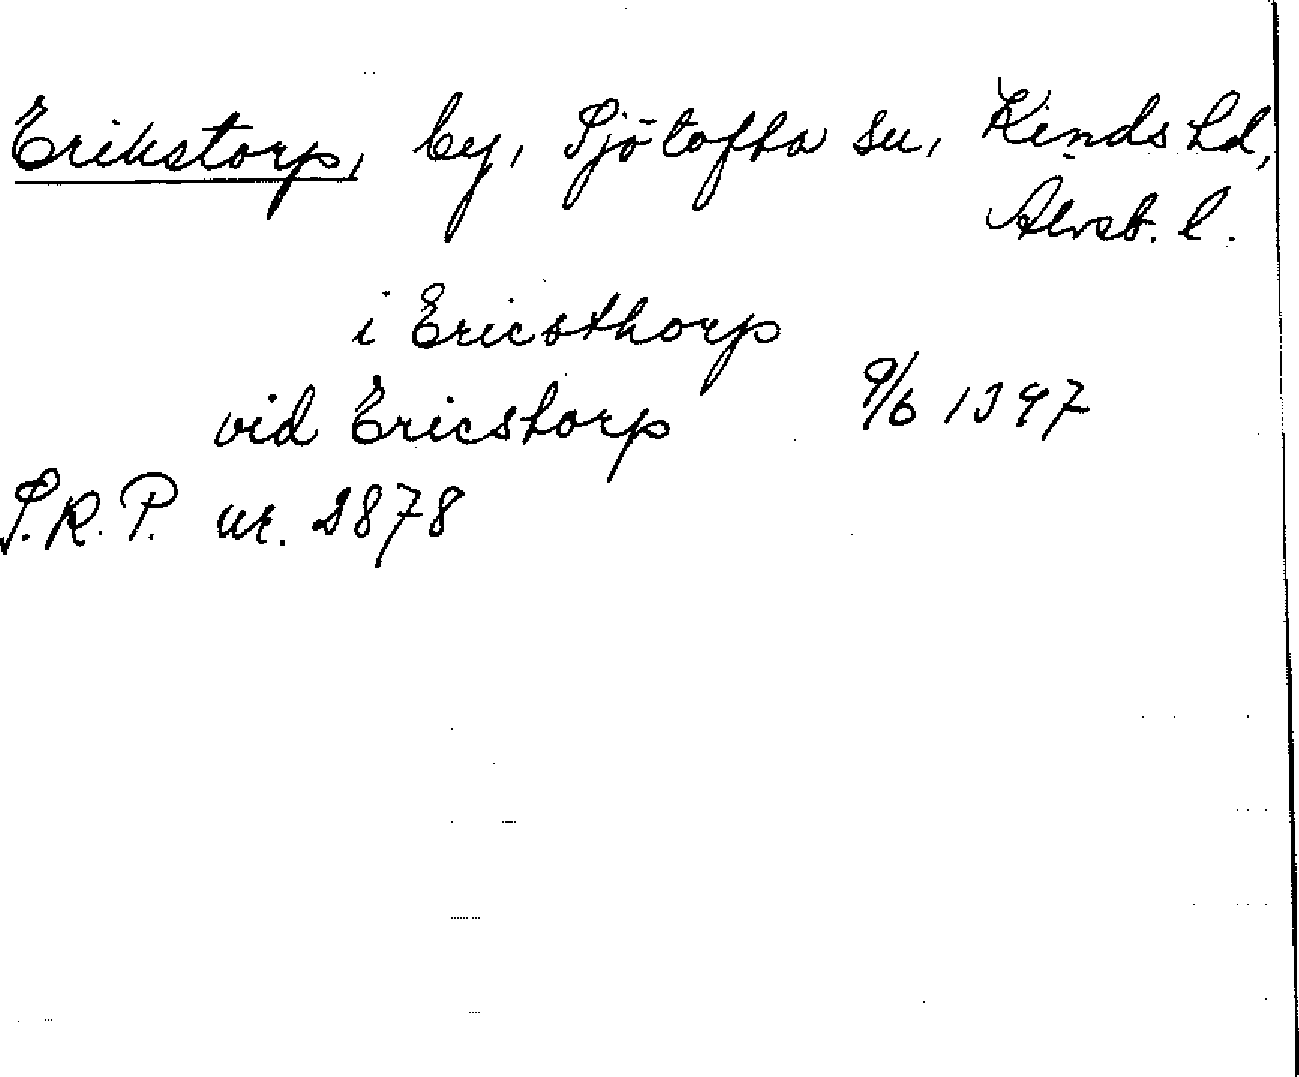 Erikstorp, by, Sjötofta sn, Kinds hd,
Älvsb. l.
i Ericsthorp
vid Ericstorp 9/6 1397
S.R.P. nr. 2878